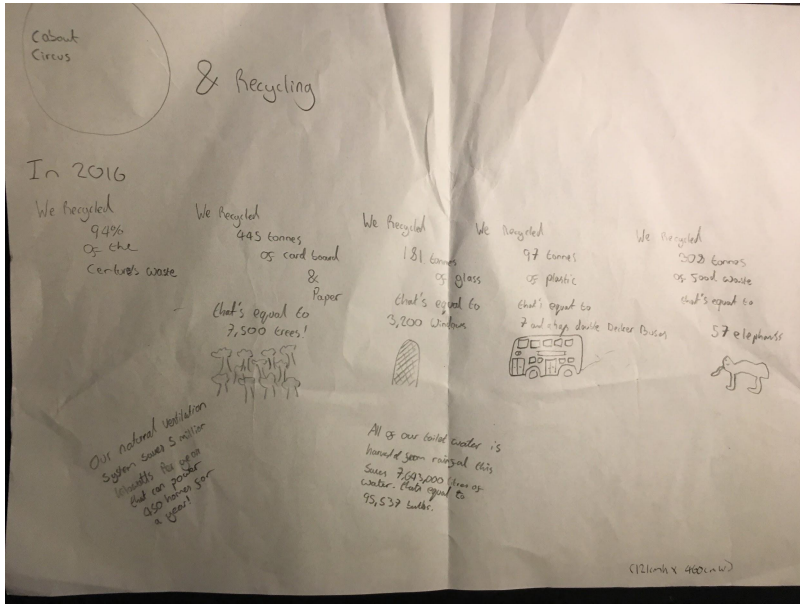 Cabout
Circus
& Recycling
In 2016
We Recycled
94%
of the
waste
We Recycled
445 tonnes
of card board
&
Paper
that's equal to
7,500 trees!
We Recycled
181 tonnes
of glass
that's equal to
3,200 windows
We Recycled
97 tonnes
of plastic
that's equal to
7 and double Decker Buses
We Recycled
308 tonnes
of food waste
that's equal to
57 elephants
Our natural ventilation
system saves 5 million
per year
that can power
a year!
All of our toilet water is
this
saves 7,643,000 litres of
water. equal to
(121cmh x 460cmw)